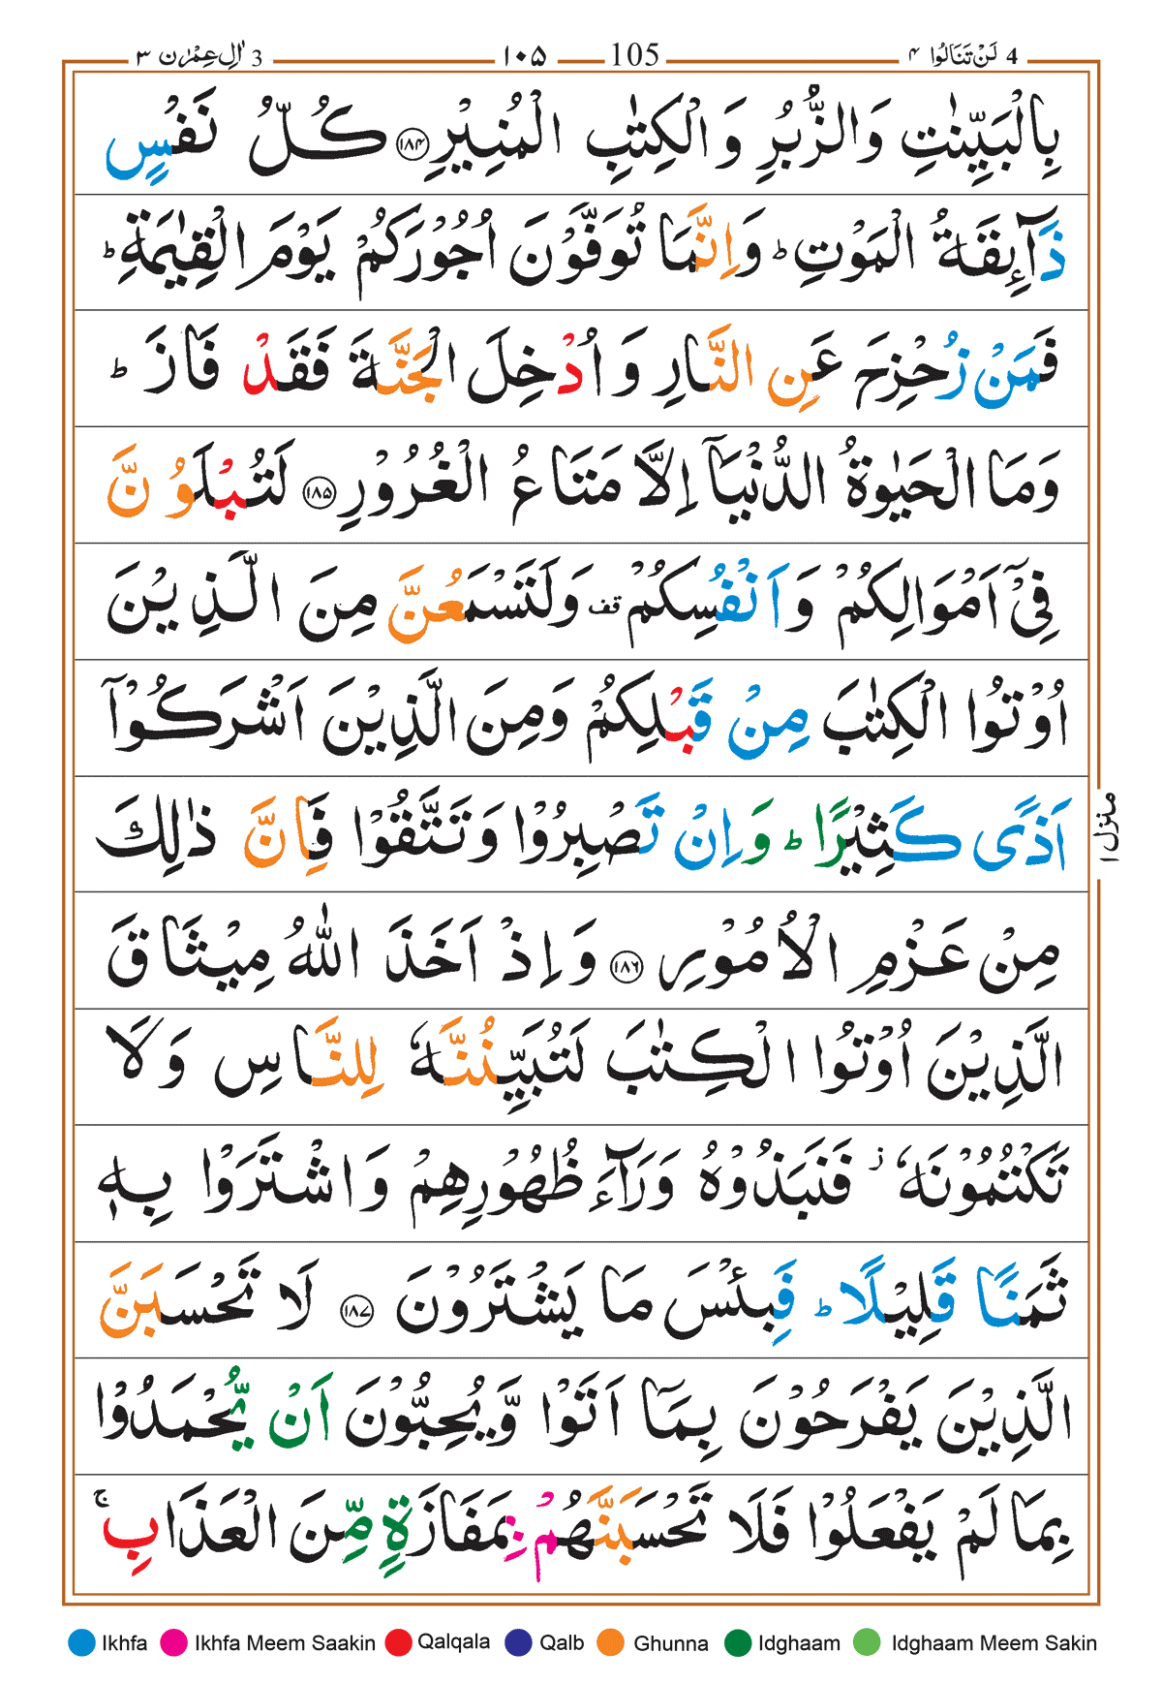 4 لَنْ تَنَالُوا ۴ 105 ۱۰۵ 3 اٰلِ عِمْرٰن ۳
بِالْبَيِّنٰتِ وَالزُّبُرِ وَالْكِتٰبِ الْمُنِيْرِ ۝۱۸۴ كُلُّ نَفْسٍ
ذَآىِٕقَةُ الْمَوْتِ ؕ وَاِنَّمَا تُوَفَّوْنَ اُجُوْرَكُمْ يَوْمَ الْقِيٰمَةِ ؕ
فَمَنْ زُحْزِحَ عَنِ النَّارِ وَاُدْخِلَ الْجَنَّةَ فَقَدْ فَازَ ؕ
وَمَا الْحَيٰوةُ الدُّنْيَاۤ اِلَّا مَتَاعُ الْغُرُوْرِ ۝۱۸۵ لَتُبْلَوُنَّ
فِيْۤ اَمْوَالِكُمْ وَاَنْفُسِكُمْ قف وَلَتَسْمَعُنَّ مِنَ الَّذِيْنَ
اُوْتُوا الْكِتٰبَ مِنْ قَبْلِكُمْ وَمِنَ الَّذِيْنَ اَشْرَكُوْۤا
اَذًى كَثِيْرًا ؕ وَاِنْ تَصْبِرُوْا وَتَتَّقُوْا فَاِنَّ ذٰلِكَ
مِنْ عَزْمِ الْاُمُوْرِ ۝۱۸۶ وَاِذْ اَخَذَ اللّٰهُ مِيْثَاقَ
الَّذِيْنَ اُوْتُوا الْكِتٰبَ لَتُبَيِّنُنَّهٗ لِلنَّاسِ وَلَا
تَكْتُمُوْنَهٗ ز فَنَبَذُوْهُ وَرَآءَ ظُهُوْرِهِمْ وَاشْتَرَوْا بِهٖ
ثَمَنًا قَلِيْلًا ؕ فَبِئْسَ مَا يَشْتَرُوْنَ ۝۱۸۷ لَا تَحْسَبَنَّ
الَّذِيْنَ يَفْرَحُوْنَ بِمَاۤ اَتَوْا وَّيُحِبُّوْنَ اَنْ يُّحْمَدُوْا
بِمَا لَمْ يَفْعَلُوْا فَلَا تَحْسَبَنَّهُمْ بِمَفَازَةٍ مِّنَ الْعَذَابِ ۚ
منزل ۱
Ikhfa Ikhfa Meem Saakin Qalqala Qalb Ghunna Idghaam Idghaam Meem Sakin